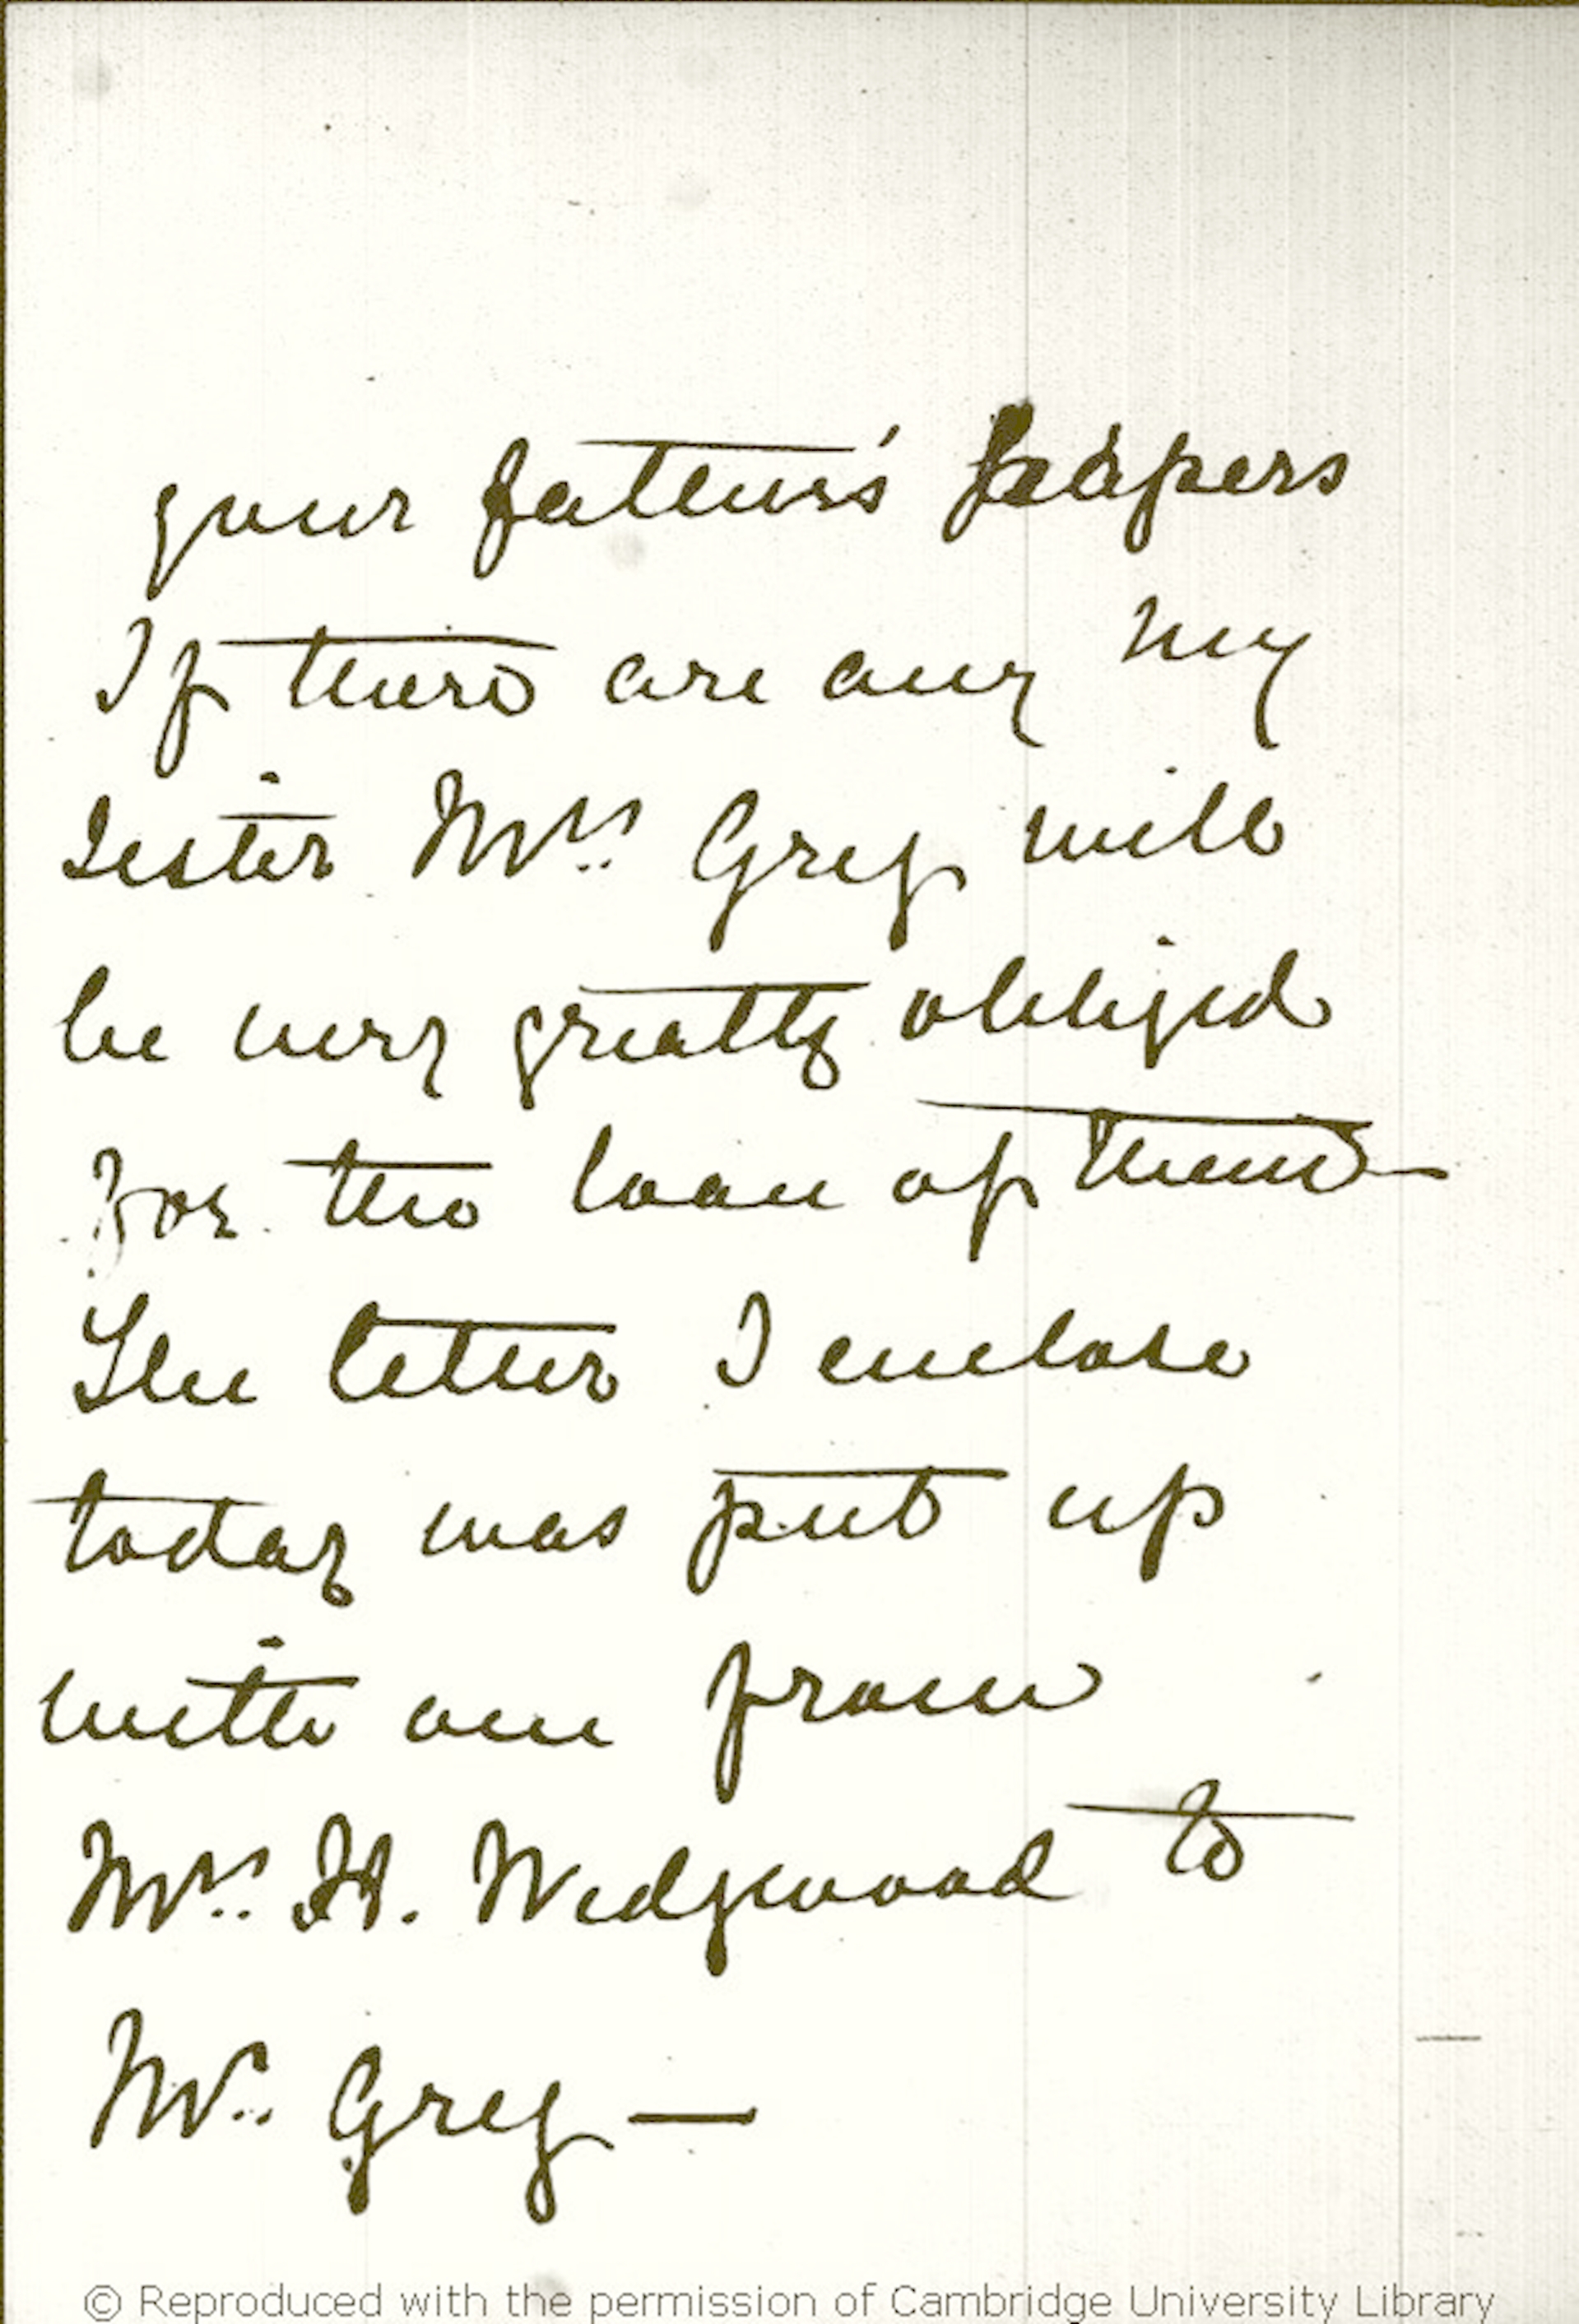 your father's papers
If there are any my
sister Mrs. Greg will
be very greatly obliged
for the loan of them
The letter I enclose
today was put up
with one from
Mrs. H. Wedgwood to
Mr. Greg —
© Reproduced with the permission of Cambridge University Library